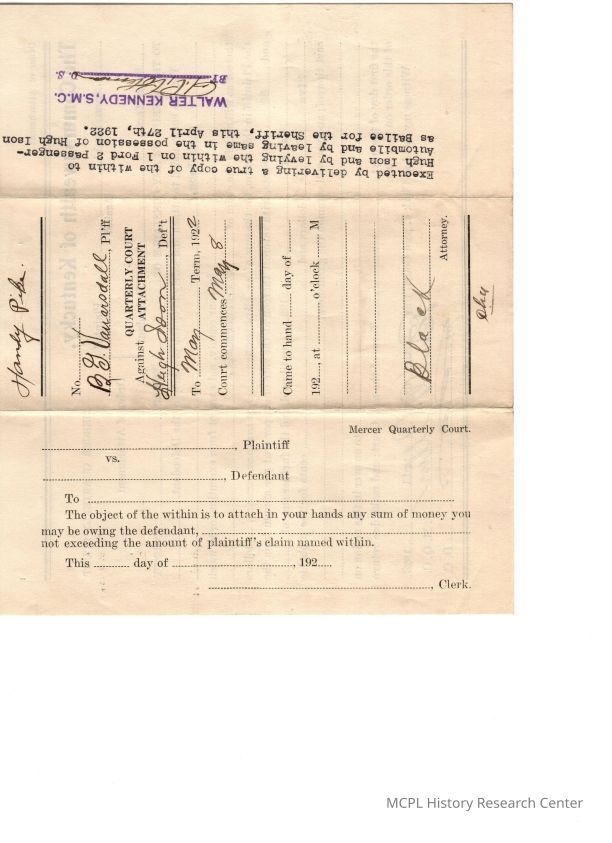 Executed by delivering a true copy of the within to
Hugh Ison and by levying the within on 1 Ford 2 Passenger-
Automobile and by leaving same in the possession of Hugh Ison
as Bailee for the Sheriff, this April 27th, 1922.
WALTER KENNEDY, S.M.C.
BY D. S.
Handy Pike.
No.
B. G. Vanarsdall, Pl'ff
QUARTERLY COURT
ATTACHMENT
Against
Hugh Ison, Def't
To May Term, 1922
Court commences May 8
Came to hand day of
192 , at o'clock M
Black
Attorney.
Mercer Quarterly Court.
, Plaintiff
vs.
, Defendant
To
The object of the within is to attach in your hands any sum of money you
may be owing the defendant,
not exceeding the amount of plaintiff's claim named within.
This day of , 192
, Clerk.
MCPL History Research Center